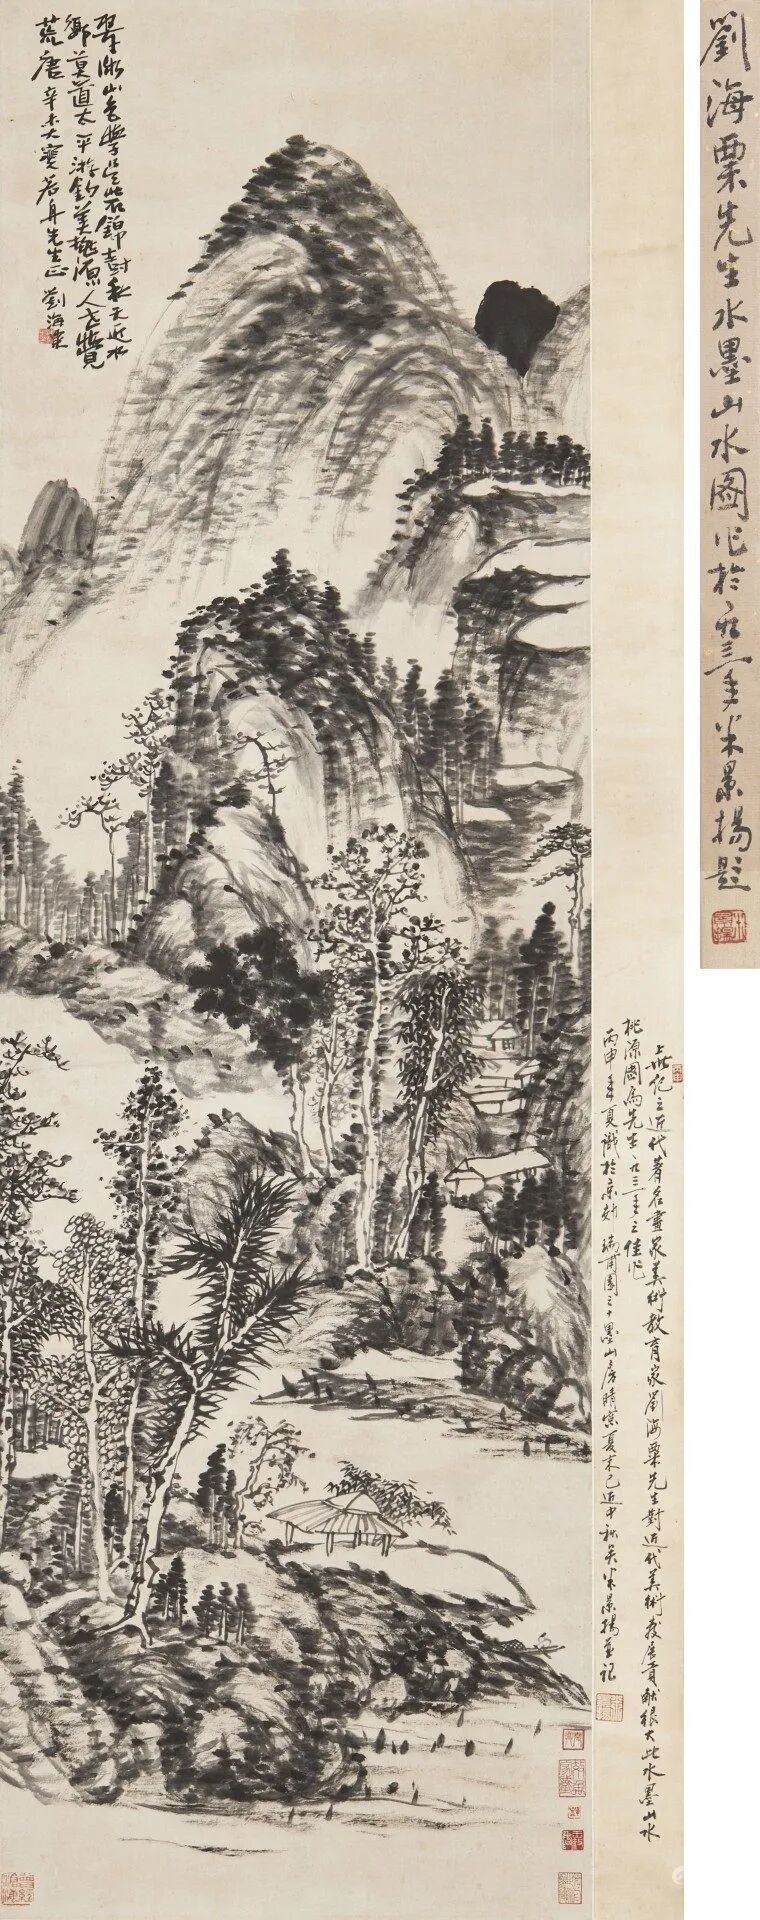 翠微山色學這些石錦封秋天近水
鄉莫道太平游釣美桃源人世覺
荒唐 辛未大寒若舟先生正 劉海粟
劉海粟先生水墨山水圖作於一九三一年米景揚題
上世紀之近代著名畫家美術教育家劉海粟先生對近代美術發展貢獻很大此水墨山水
桃源圖為先生一九三一年之佳作
丙申年夏識於京郊瑞甫園之十墨山房晴窗夏末已近中秋矣米景揚并記